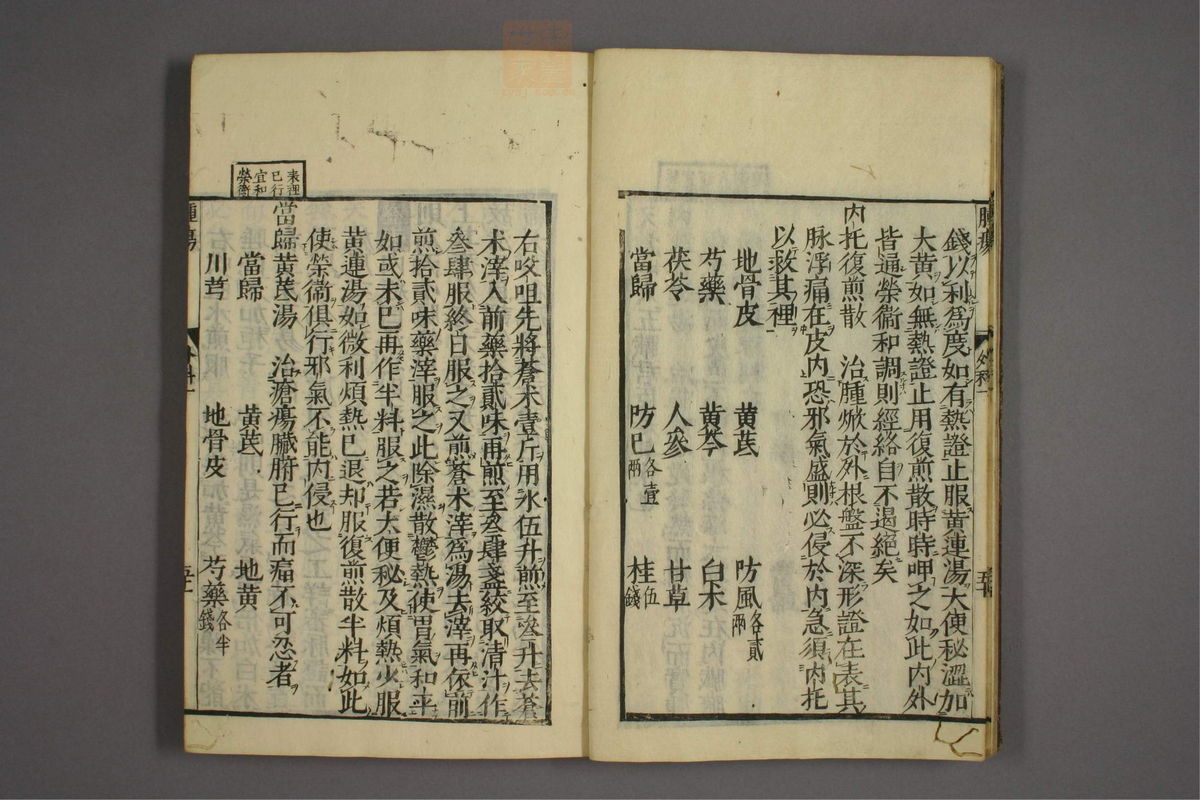 錢以利爲度如有熱證止服黃連湯大便秘澀加
大黃如無熱證止用復煎散時時呷之如此內外
皆通榮衞和調則經絡自不遏絕矣
內托復煎散　治腫焮於外根盤不深形證在表其
脉浮痛在皮內恐邪氣盛則必侵於內急須內托
以救其裡
地骨皮　黃芪　防風各貳兩
芍藥　黃芩　白朮
茯苓　人參　甘草
當歸　防已各壹兩　桂伍錢
右㕮咀先將蒼朮壹斤用水伍升煎至叄升去蒼
朮滓入前藥拾貳味再煎至叄肆盞絞取清汁作
叄肆服終日服之又煎蒼朮滓爲湯去滓再依前
煎拾貳味藥滓服之此除濕散鬱熱使胃氣和平
如或未已再作半料服之若大便秘及煩熱少服
黃連湯如微利煩熱已退却服復煎散半料如此
使榮衞俱行邪氣不能內侵也
表裡已行宜和榮衞
當歸黃芪湯　治瘡瘍臟腑已行而痛不可忍者
當歸　黃芪　地黃
川芎　地骨皮　芍藥各半錢
腫瘍